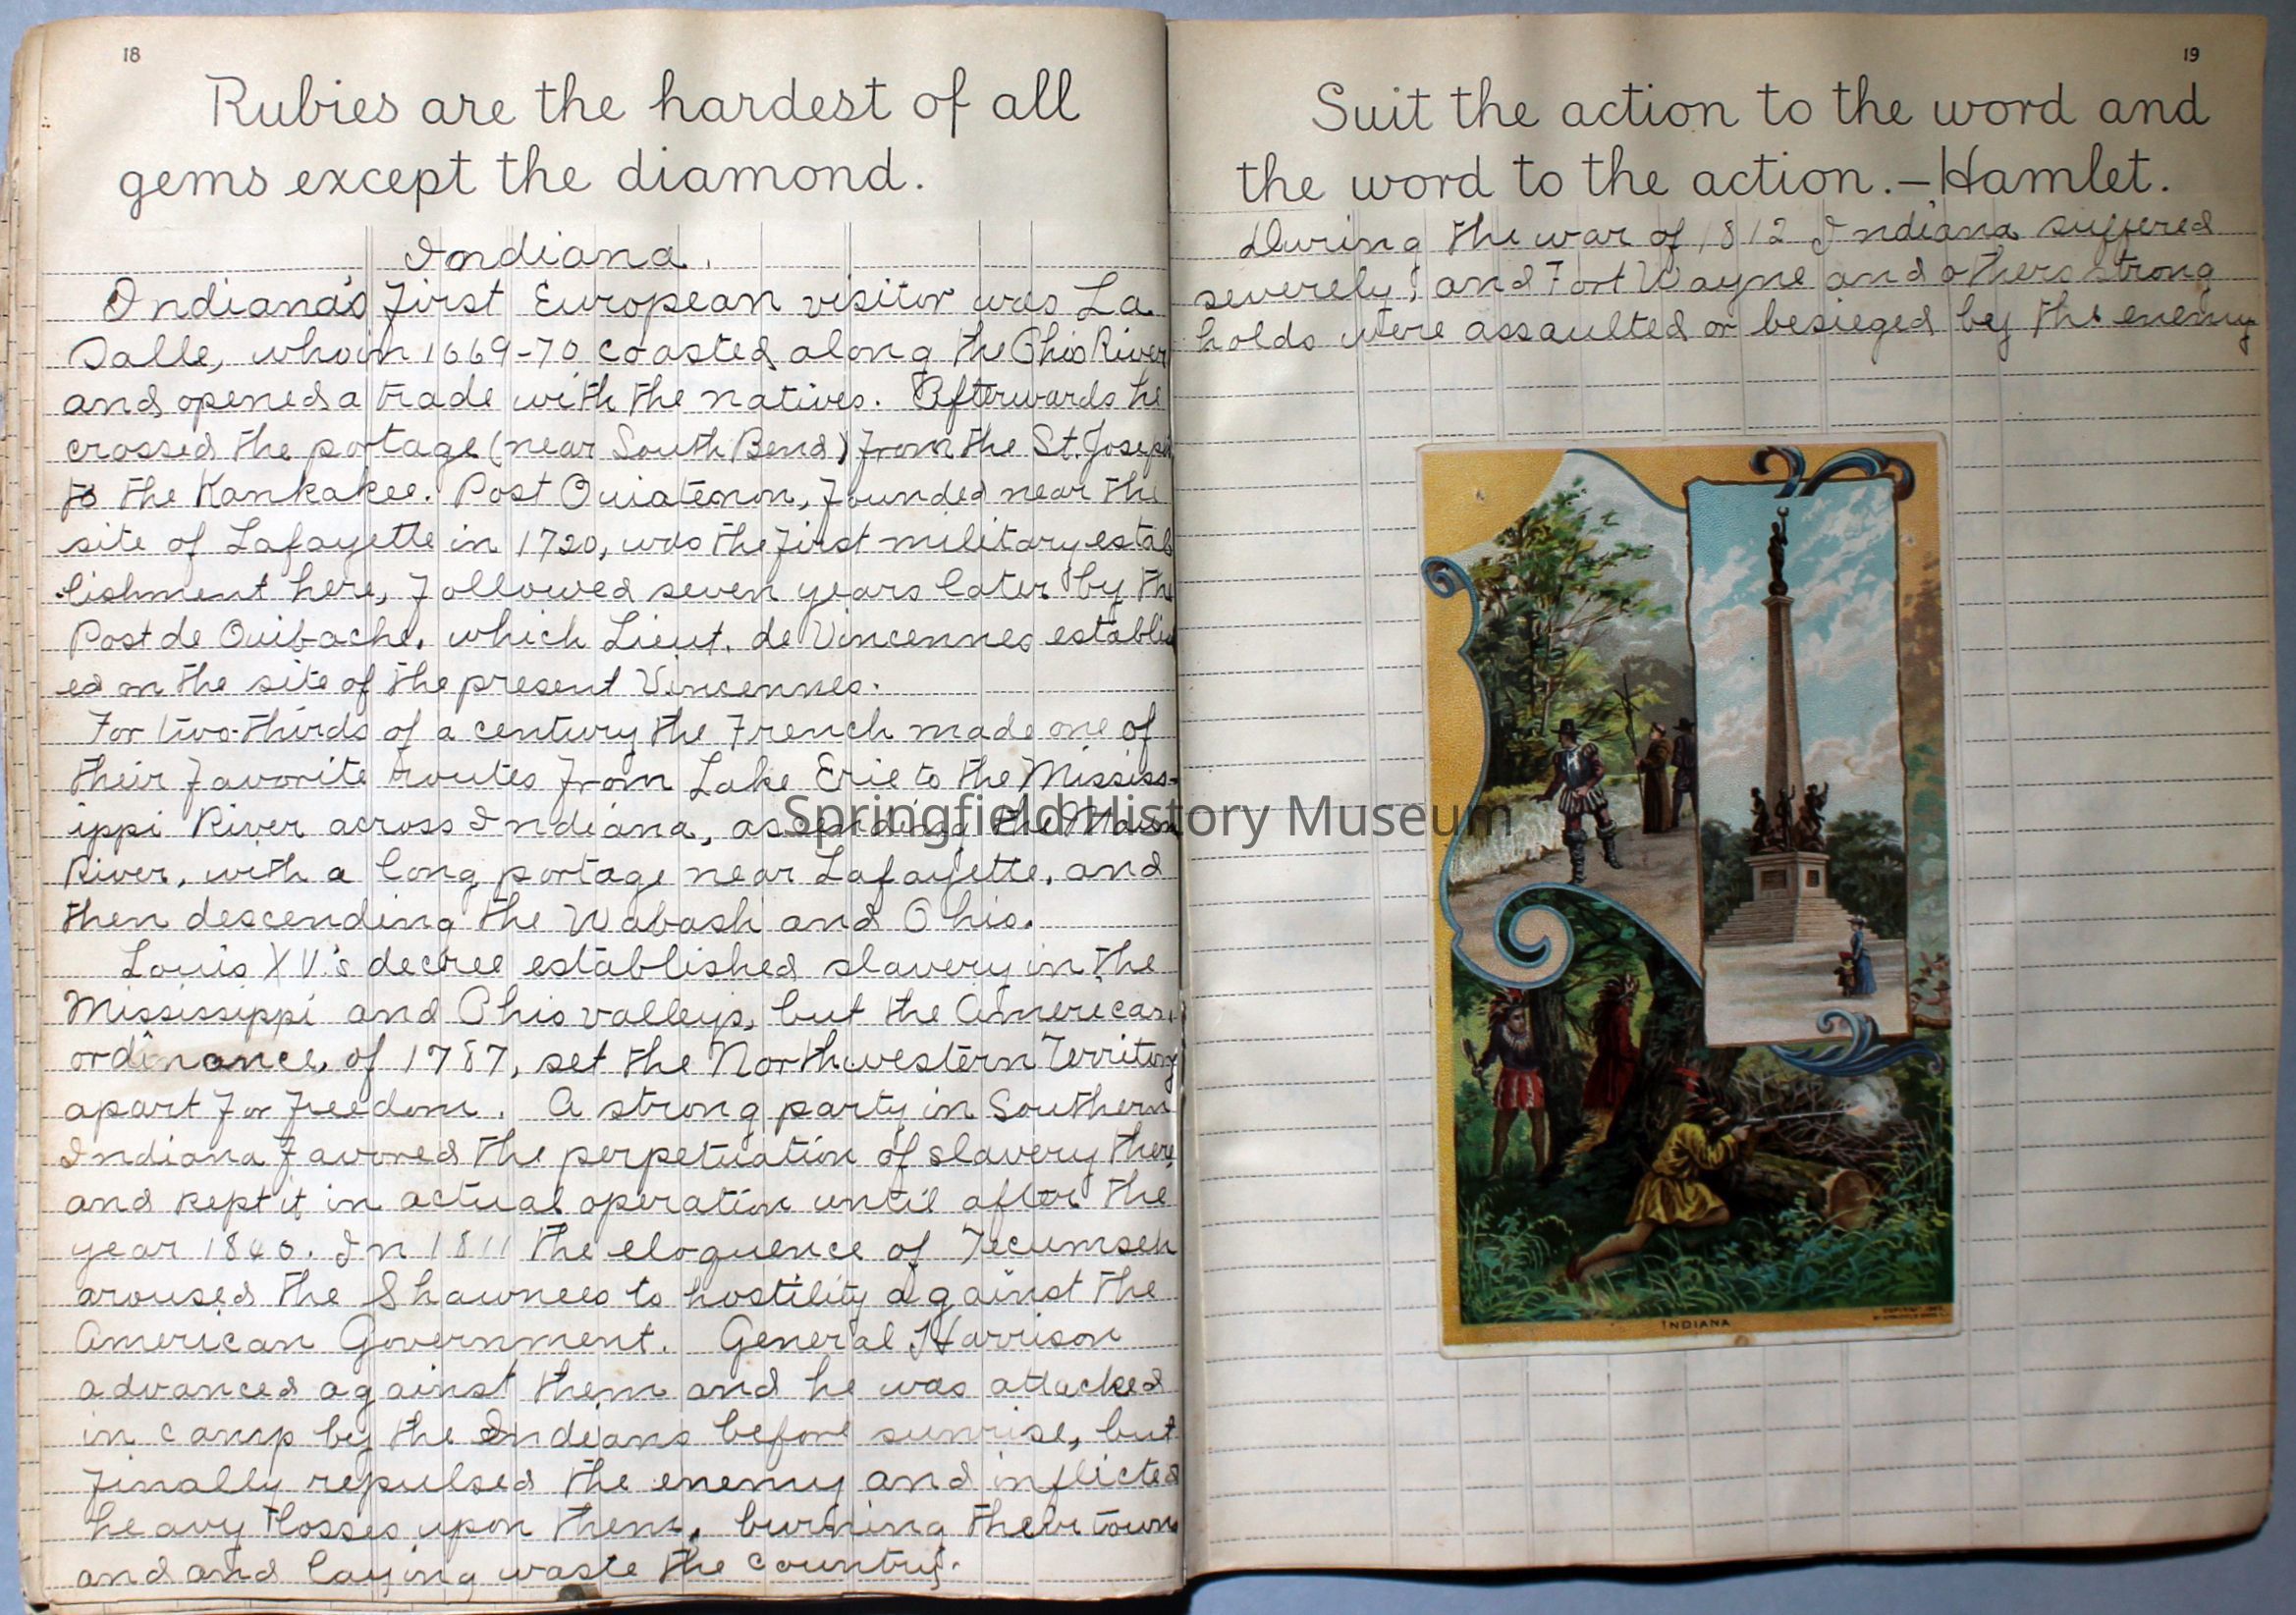 18
Rubies are the hardest of all
gems except the diamond.
Indiana.
Indiana's first European visitor was La
Salle, who in 1669-70 coasted along the Ohio River
and opened a trade with the natives. Afterwards he
crossed the portage (near South Bend) from the St. Joseph
to the Kankakee. Post Ouiatenon, founded near the
site of Lafayette in 1720, was the first military estab
lishment here, followed seven years later by the
Post de Ouibache, which Lieut. de Vincennes establish
ed on the site of the present Vincennes.
For two-thirds of a century the French made one of
their favorite routes from Lake Erie to the Mississ-
ippi River across Indiana, ascending the
River, with a long portage near Lafayette, and
then descending the Wabash and Ohio.
Louis XV.'s decree established slavery in the
Mississippi and Ohio valleys, but the American
ordinance, of 1787, set the Northwestern Territory
apart for freedom. A strong party in Southern
Indiana favored the perpetuation of slavery there
and kept it in actual operation until after the
year 1840. In 1811 the eloquence of Tecumseh
aroused the Shawnees to hostility against the
American Government. General Harrison
advanced against them and he was attacked
in camp by the Indians before sunrise, but
finally repulsed the enemy and inflicted
heavy losses upon them, burning their town
and and laying waste the country.
19
Suit the action to the word and
the word to the action.—Hamlet.
During the war of 1812 Indiana suffered
severely, and Fort Wayne and others strong
holds were assaulted or besieged by the enemy
INDIANA
Springfield History Museum